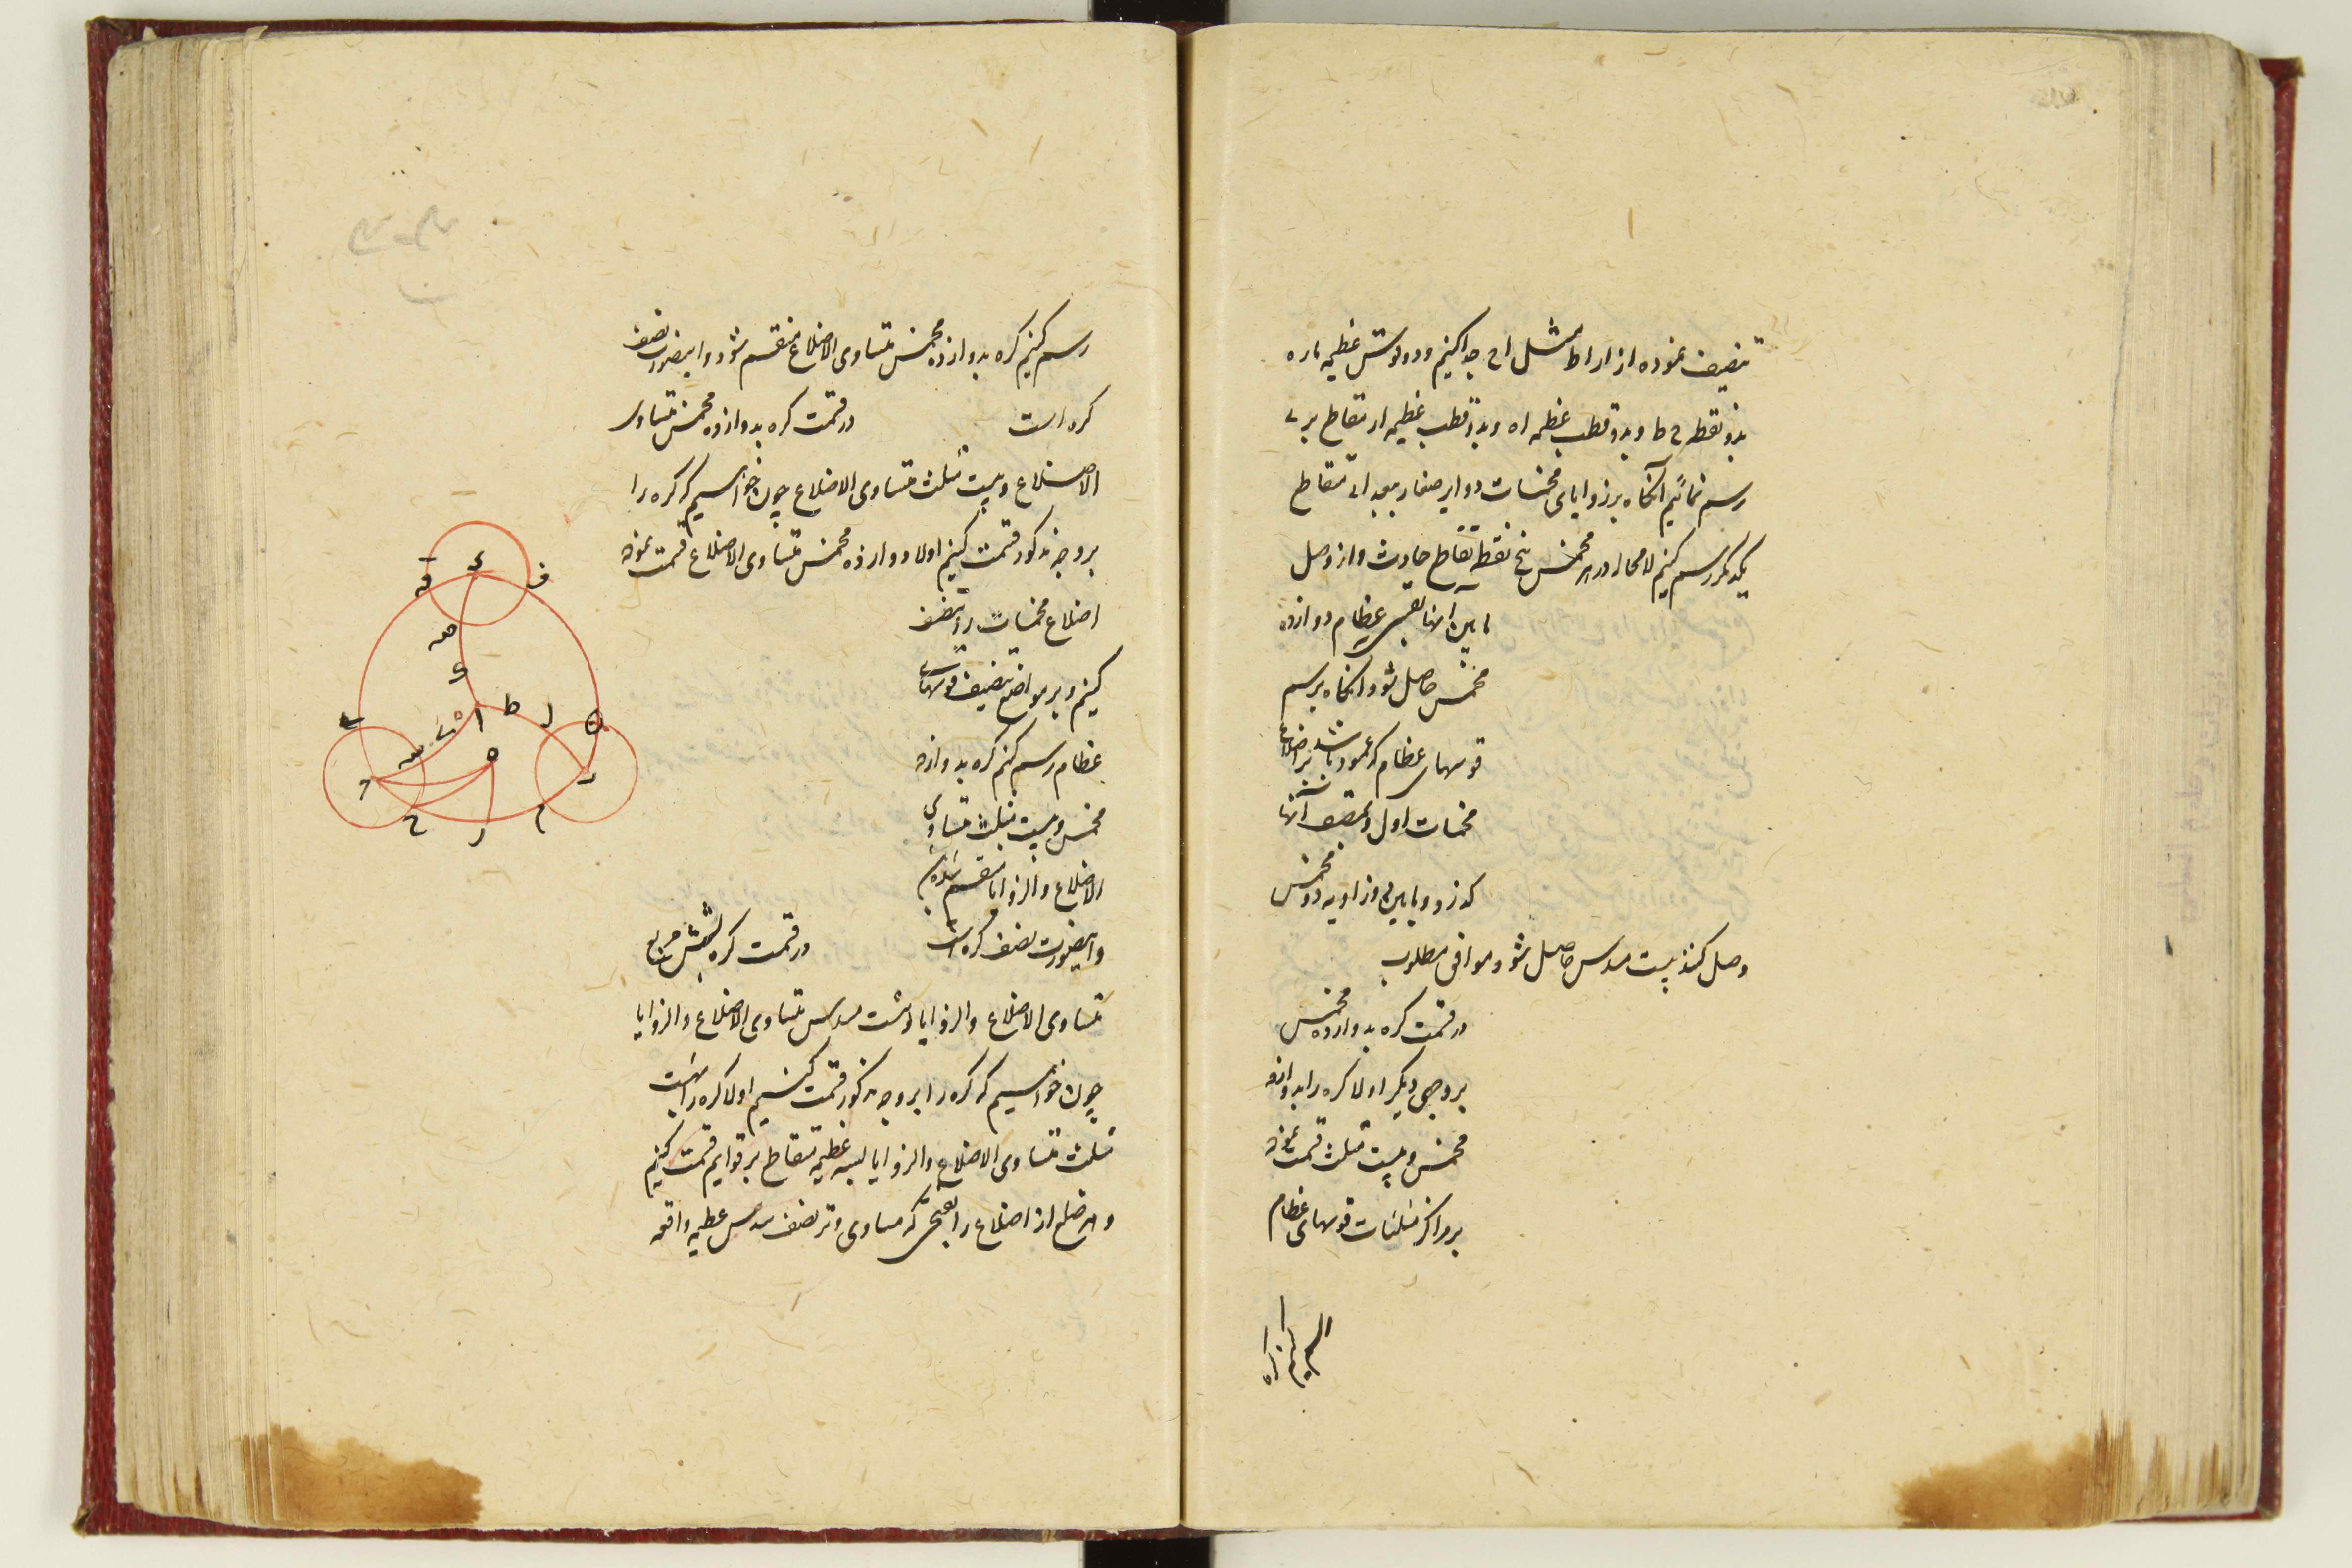 تنصیف نموده از ا ر ا ط مثل ا ح جدا کنیم و دو قوس عظیمه ماره
بدو نقطه ح ط و بدو قطب عظیمه ا ه و بدو قطب عظیمه ا ر متقاطع بر ے
رسم نمائیم آنگاه بر زوایای مخمسات دوایر صغار ببعد ا ے متقاطع
یکدیگر رسم کنیم لا محاله در هر مخمس پنج نقطه تقاطع حادث و از وصل
ما بین آنها بقسی عظام دوازده
مخمس حاصل شود و آنگاه برسم
قوسهای عظام که عمود باشد بر اضلاع
مخمسات اول و بمنتصف آنها
گذرد و ما بین دو زاویه دو مخمس
وصل کند بیست مسدس حاصل شود موافق مطلوب
در قسمت کره بدوازده مخمس
بروجهی دیگر اولا کره را بدوازده
مخمس و بیست مثلث قسمت نموده
بر مراکز مثلثات قوسهای عظام
رسم کنیم کره
رسم کنیم کره بدوازده مخمس متساوی الاضلاع منقسم شود و اینصورت نصف
کره است در قسمت کره بدوازده مخمس متساوی
الاضلاع و بیست مثلث متساوی الاضلاع چون خواسیم که کره را
بروجه مذکور قسمت کنیم اولا دوازده مخمس متساوی الاضلاع قسمت نموده
اضلاع مخمسات را تنصیف
کنیم و بر مواضع تنصیف قوسهای
عظام رسم کنیم کره بدوازده
مخمس و بیست مثلث متساوی
الاضلاع و الزوایا منقسم شود
و اینصورت نصف کره است در قسمت کره بشش مربع
متساوی الاضلاع و الزوایا و هشت مسدس متساوی الاضلاع و الزوایا
چون خواسیم که کره را بروجه مذکور قسمت کنیم اولا کره را بهشت
مثلث متساوی الاضلاع و الزوایا بسه عظیمه متقاطع بر قوایم قسمت کنیم
و هر ضلع از اضلاع را بقوسی که مساوی وتر نصف سدس عظیمه واقعه
ی
ف
ق
ا
ط
ل
ه
م
ر
ح